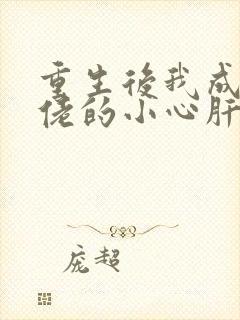 重生後我成
佬的小心肝
庞超